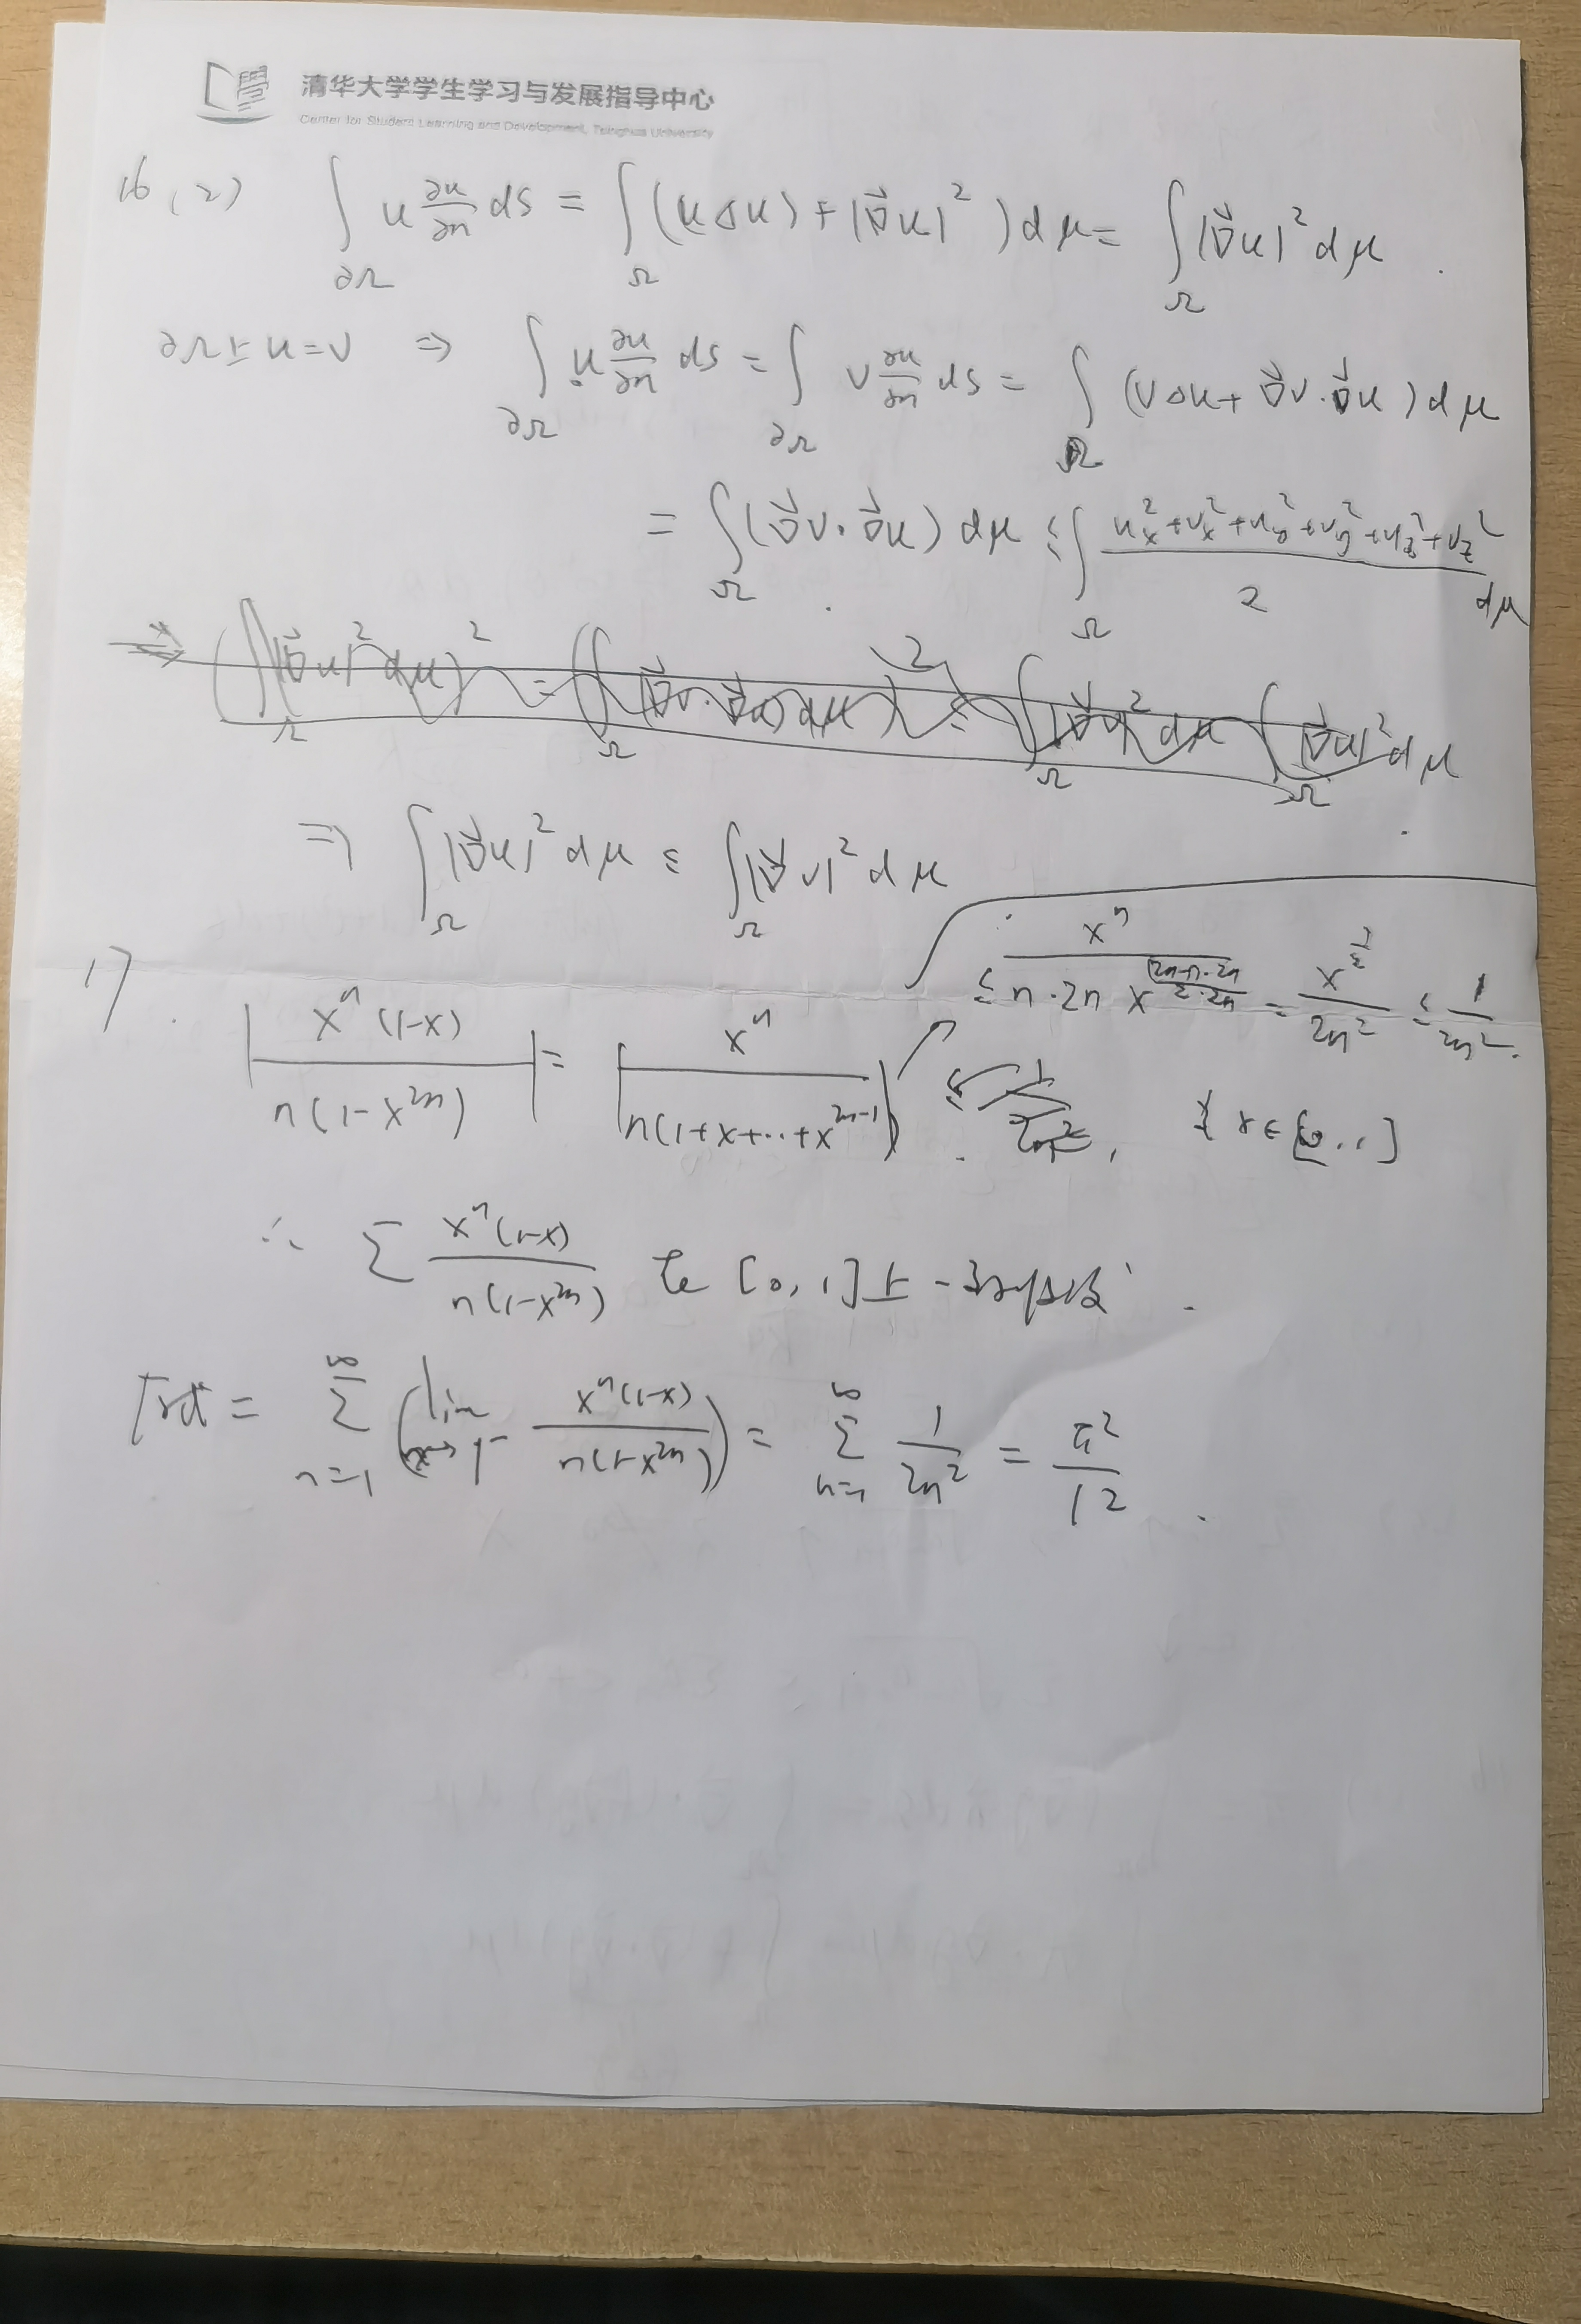 清华大学学生学习与发展指导中心
Center for Student Learning and Development, Tsinghua University
16 (2) ∫_{∂Ω} u ∂u/∂n dS = ∫_Ω (uΔu) + |∇⃗u|²) dμ = ∫_Ω |∇⃗u|² dμ.
∂Ω上 u=v ⇒ ∫_{∂Ω} u ∂u/∂n dS = ∫_{∂Ω} v ∂u/∂n dS = ∫_Ω (vΔu + ∇⃗v·∇⃗u) dμ
= ∫_Ω (∇⃗v·∇⃗u) dμ ≤ ∫_Ω (u_x²+v_x²+u_y²+v_y²+u_z²+v_z²)/2 dμ
⇒ ∫_Ω |∇⃗u|² dμ ≤ ∫_Ω |∇⃗v|² dμ
17. |x^n(1-x)/(n(1-x^{2n}))| = |x^n/(n(1+x+…+x^{2n-1}))| ≤ x^n/(n·2n x^{(2n-1)·2n/(2·2n)}) = x^{1/2}/(2n²) ≤ 1/(2n²). ∀ x∈[0,1]
∴ Σ x^n(1-x)/(n(1-x^{2n})) 在 [0,1]上一致收敛.
原式 = Σ_{n=1}^∞ (lim_{x→1^-} x^n(1-x)/(n(1-x^{2n}))) = Σ_{n=1}^∞ 1/(2n²) = π²/12.